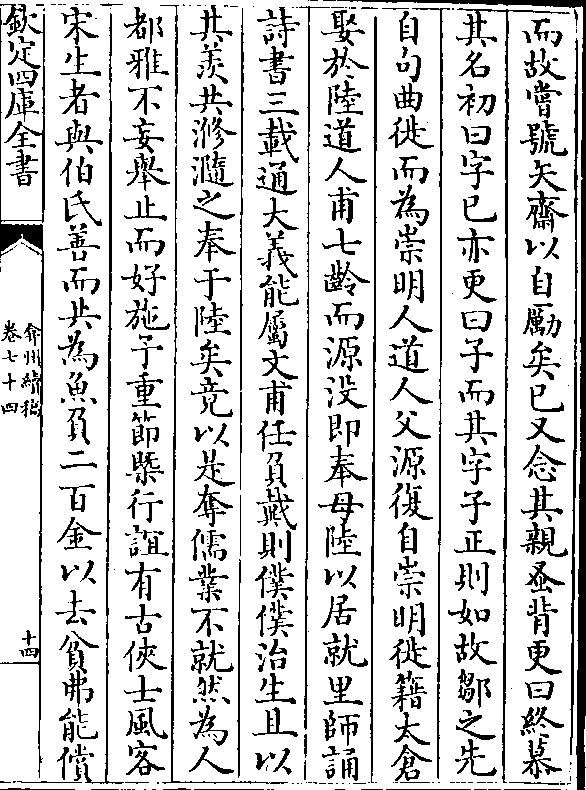 而故嘗號矢齋以自勵矣已又念其親蚤背更曰終慕
其名初曰字已亦更曰子而其字子正則如故鄒之先
自句曲徙而為崇明人道人父源復自崇明徙籍太倉
娶於陸道人甫七齡而源没即奉母陸以居就里師誦
詩書三載通大義能屬文甫任負戴則僕僕治生且以
共羨共滫瀡之奉于陸矣竟以是奪儒業不就然為人
都雅不妄舉止而好施予重節槩行誼有古俠士風客
宋生者與伯氏善而共為魚負二百金以去貧弗能償
欽定四庫全書
弇州續稿
卷七十四
十四